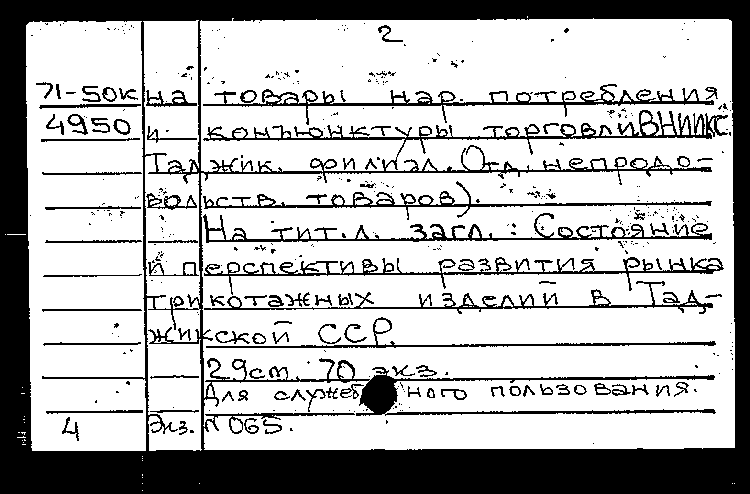 2
71-50к на товары нар. потребления
4950 и конъюнктуры торговли ВНИИКС
Таджик. филиал. Отд. непродо-
вольств. товаров).
На тит. л. загл.: Состояние
и перспективы развития рынка
трикотажных изделий в Тад-
жикской ССР.
29 ст. 70 экз.
Для служебного пользования.
4 Экз. N 065.